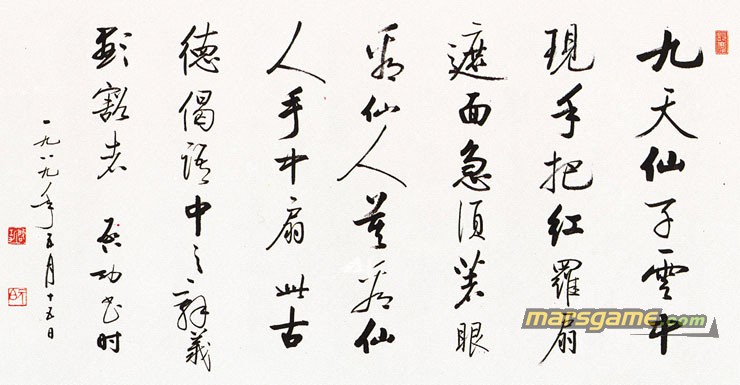 九天仙子雲中
現手把紅羅扇
遮面急須著眼
看仙人莫看仙
人手中扇此古
德偈語中之辭義
彰豁者 启功书时
一九八九年五月十五日
marsgame.com